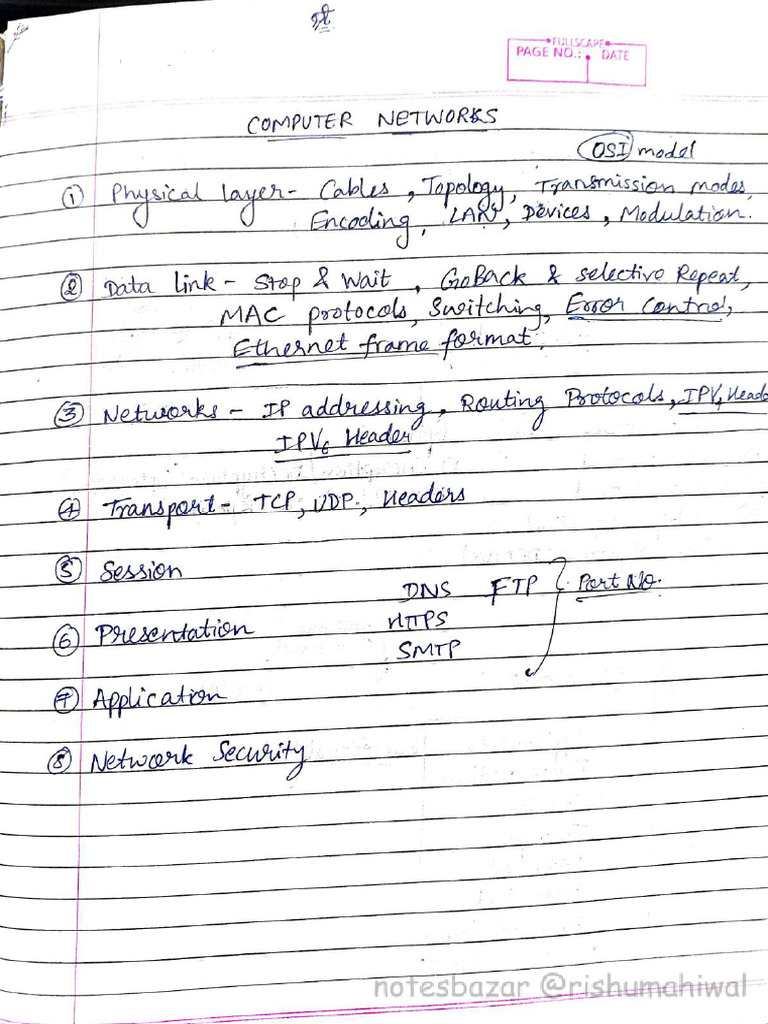 श्री
FULLSCAPE
PAGE NO.: DATE
COMPUTER NETWORKS
OSI model
① Physical layer - Cables, Topology, Transmission modes,
Encoding, LAN, Devices, Modulation.
② Data link - Stop & Wait, GoBack & selective Repeat,
MAC protocols, Switching, Error Control,
Ethernet frame format.
③ Networks - IP addressing, Routing Protocols, IPV4 Heade
IPV6 Header
④ Transport - TCP, UDP, Headers
⑤ Session
DNS FTP } Port No.
HTTPS
⑥ Presentation
SMTP
⑦ Application
⑧ Network Security
notesbazar @rishumahiwal